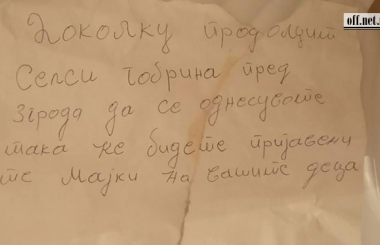 off.net.
Доколку продолцит
Селси тобрина пред
зграда да се однесувате
така ке бидете пријавени
те мајки на вашите деца